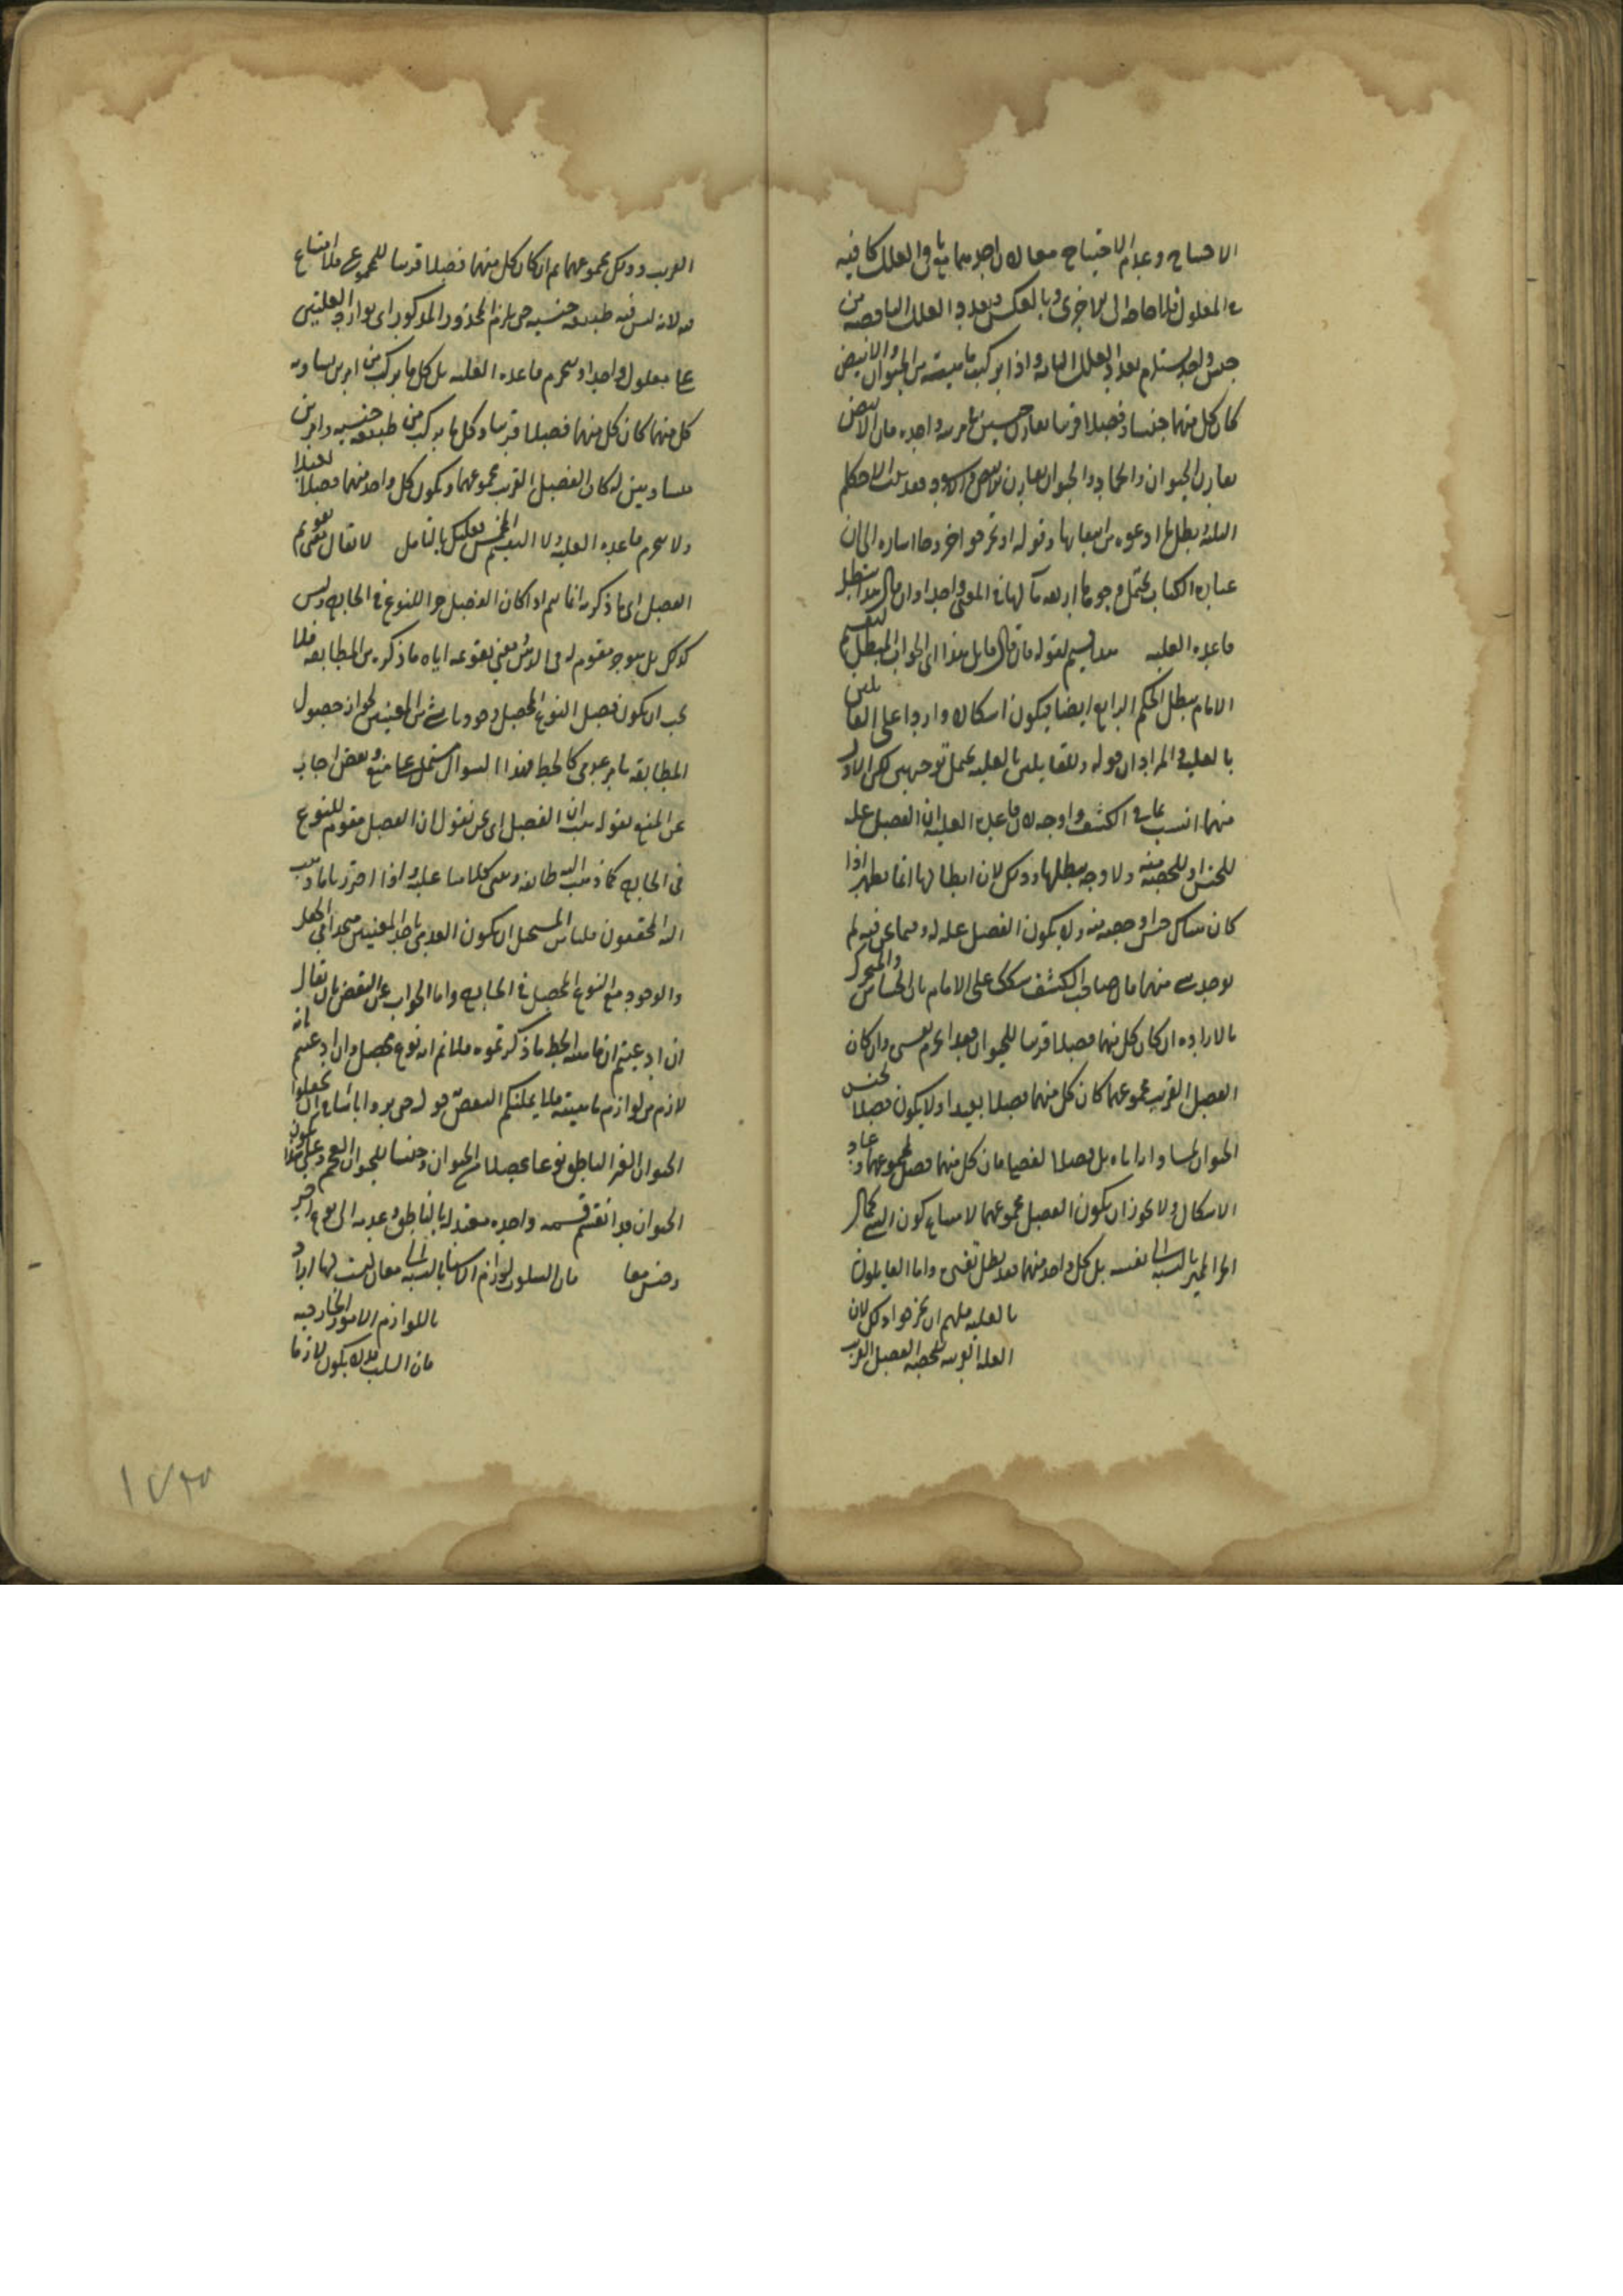 الاحتياج وعدم الاحتياج معا لان احديهما مع باقي العلل كافية
في المعلول فلا حاجة الى الاخرى وبالعكس وتعدد العلل الناقصة من
جنس واحد يستلزم تعدد العلل التامة واذا تركبت ماهية من الحيوان والابيض
كان كل منهما جنسا وفصلا قريبا يقارن جنسين في مرتبة واحدة فان الابيض
يقارن الحيوان والجماد والحيوان يقارن الابيض والاسود فقد بطلت الاحكام
الثلثة بطل ما ادعوه من امتناعها وقوله او نحو آخر وجها اشارة الى ان
عبارة الكتاب تحتمل وجوها اربعة مآلها في المعنى واحد
قاعدة العلية بقوله فان قال قائل هذا اى الجواب المبطل لتقسيم
الامام يبطل الحكم الرابع ايضا فيكون اشكالا واردا على القائلين
بالعلية والمراد ان قوله وللقائلين بالعلية يحتمل توجيهين لكن الاول
منهما انسب بما في الكشف واوجه لان قاعدة العلية ان الفصل علة
للجنس او للحصة منه ولا وجه يبطلها وذلك لان ابطالها انما يظهر اذا
كان هناك جنس او حصة منه ولا يكون الفصل علة له وفيما نحن فيه لم
يوجد شيء منهما قال صاحب الكشف شكك على الامام بان الحساس والمتحرك
بالارادة ان كان كل منهما فصلا قريبا للحيوان فقد انخرم تقسيمي وان كان
الفصل القريب مجموعهما كان كل منهما فصلا بعيدا ولا يكون فصلا لجنس
الحيوان لمساواته اياه بل فصلا لفصله فان كل منهما فصل لمجموعهما وعاد
الاشكال ولا يجوز ان يكون الفصل مجموعهما لامتناع كون الشيء كمال
الجزء المميز بالنسبة الى نفسه بل كل واحد منهما فقد بطل تقسيمي واما القائلون
بالعلية فلهم ان يجوزوا ذلك لان
العلة القريبة للحصة الفصل القريب
القريب وذلك مجموعهما ثم ان كان كل منهما فصلا قريبا للمجموع فلا امتناع
فيه لانه ليس فيه طبيعة جنسية حتى يلزم المحذور المذكور اى توارد العلتين
على معلول واحد او تنخرم قاعدة العلية بل كل ما تركب من امرين يساويه
كل منهما كان كل منهما فصلا قريبا وكل ما تركب من طبيعة جنسية وامرين
متساويين له كان الفصل القريب مجموعهما ويكون كل واحد منهما فصلا لفصله
ولا تنخرم قاعدة العلية ولا التقسيم فعليك بالتامل لا يقال تقويم
الفصل اى ما ذكرتم انما يتم اذا كان الفصل جزءا للنوع في الخارج وليس
كذلك بل هو جزء مقوم له في الذهن معنى تقويمه اياه ما ذكره من المطابقة فلا
يجب ان يكون فصل النوع المحصل وجوديا بشيء من المعنيين لجواز حصول
المطابقة بامر عدمي كالخط فهذا السؤال يشتمل على منع ونقض اجاب
عن المنع بقوله هب ان الفصل اى نحن نقول ان الفصل مقوم للنوع
في الخارج كما ذهب اليه طائفة ونبني كلامنا عليه واذا احترزنا ما ذهب
اليه المحققون قلنا من المستحيل ان يكون العدمي باحد المعنيين متحدا في الجعل
والوجود مع النوع المحصل في الخارج واما الجواب عن النقض بان يقال
ان ادعيتم ان ماهية الخط ما ذكرتموه فلا نم انه نوع محصل وان ادعيتم بانه
لازم من لوازم ماهيته فلا يمكنكم النقض قوله حتى يروا باتباع ان يجعلوا
الحيوان الغير الناطق نوعا محصلا من الحيوان وجنسا للحيوان العجم وعلى هذا يكون
الحيوان قد انقسم قسمة واحدة معتدلة بالناطق وعدمه الى نوع اخير
وجنس معا فان السلوب لوازم الاشياء بالنسبة الى معان ليست لها اراد
باللوازم الامور الخارجية
فان السلب قد لا يكون لازما
١٧٣